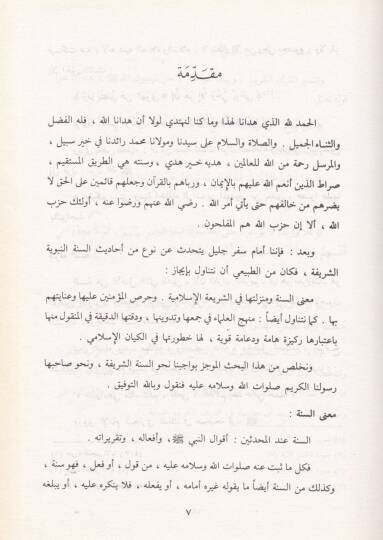 مقدّمة
الحمد لله الذي هدانا لهذا وما كنا لنهتدي لولا أن هدانا الله ، فله الفضل
والثناء الجميل . والصلاة والسلام على سيدنا ومولانا محمد رائدنا في خير سبيل ،
والمرسل رحمة من الله للعالمين ، هديه خير هدي ، وسنته هي الطريق المستقيم ،
صراط الذين أنعم الله عليهم بالإيمان ، ورباهم بالقرآن وجعلهم قائمين على الحق لا
يضرهم من خالفهم حتى يأتي أمر الله . رضي الله عنهم ورضوا عنه ، أولئك حزب
الله ، ألا إن حزب الله هم المفلحون .
وبعد : فإننا أمام سفر جليل يتحدث عن نوع من أحاديث السنة النبوية
الشريفة ، فكان من الطبيعي أن نتناول بإيجاز :
معنى السنة ومنزلتها في الشريعة الإسلامية . وحرص المؤمنين عليها وعنايتهم
بها . كما نتناول أيضاً : منهج العلماء في جمعها وتدوينها ، ودقتها الدقيقة في المنقول منها
باعتبارها ركيزة هامة ودعامة قوية ، لها خطورتها في الكيان الإسلامي .
ونخلص من هذا البحث الموجز بواجبنا نحو السنة الشريفة ، ونحو صاحبها
رسولنا الكريم صلوات الله وسلامه عليه فنقول وبالله التوفيق .
معنى السنة :
السنة عند المحدثين : أقوال النبي ﷺ ، وأفعاله ، وتقريراته .
فكل ما ثبت عنه صلوات الله وسلامه عليه ، من قول ، أو فعل ، فهو سنة ،
وكذلك من السنة أيضاً ما يقوله غيره أمامه ، أو يفعله ، فلا ينكره عليه ، أو يبلغه
٧